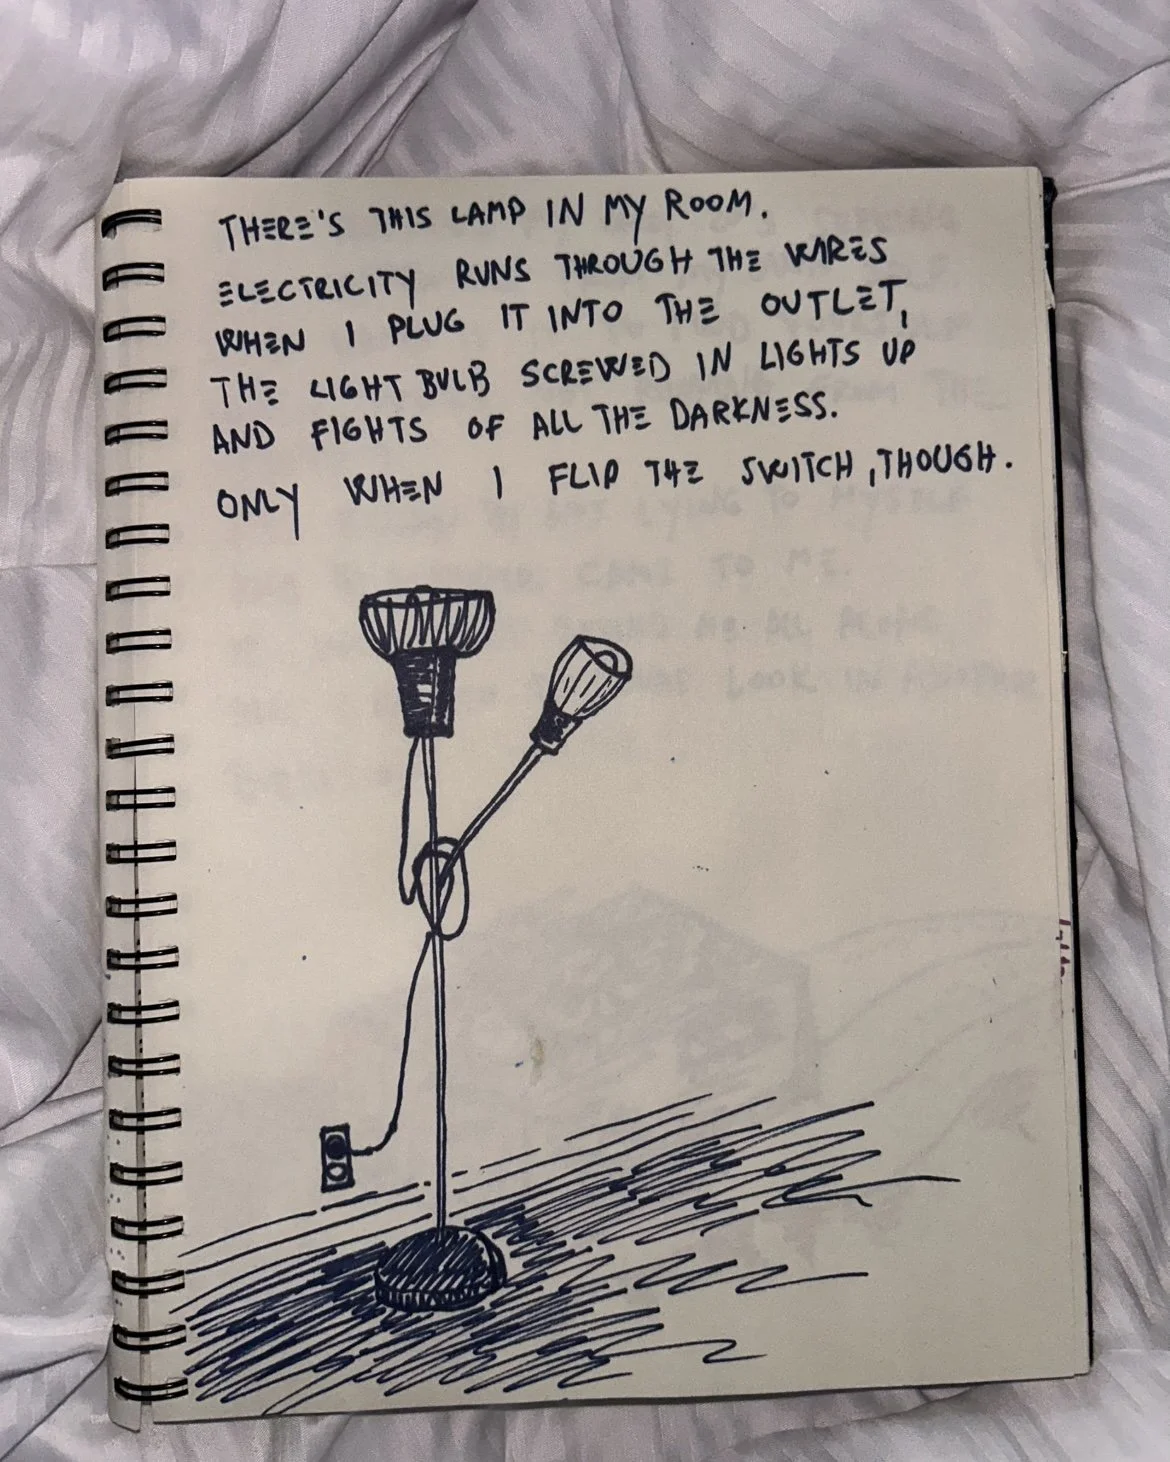 THERE'S THIS LAMP IN MY ROOM.
ELECTRICITY RUNS THROUGH THE WIRES
WHEN I PLUG IT INTO THE OUTLET,
THE LIGHT BULB SCREWED IN LIGHTS UP
AND FIGHTS OF ALL THE DARKNESS.
ONLY WHEN I FLIP THE SWITCH, THOUGH.